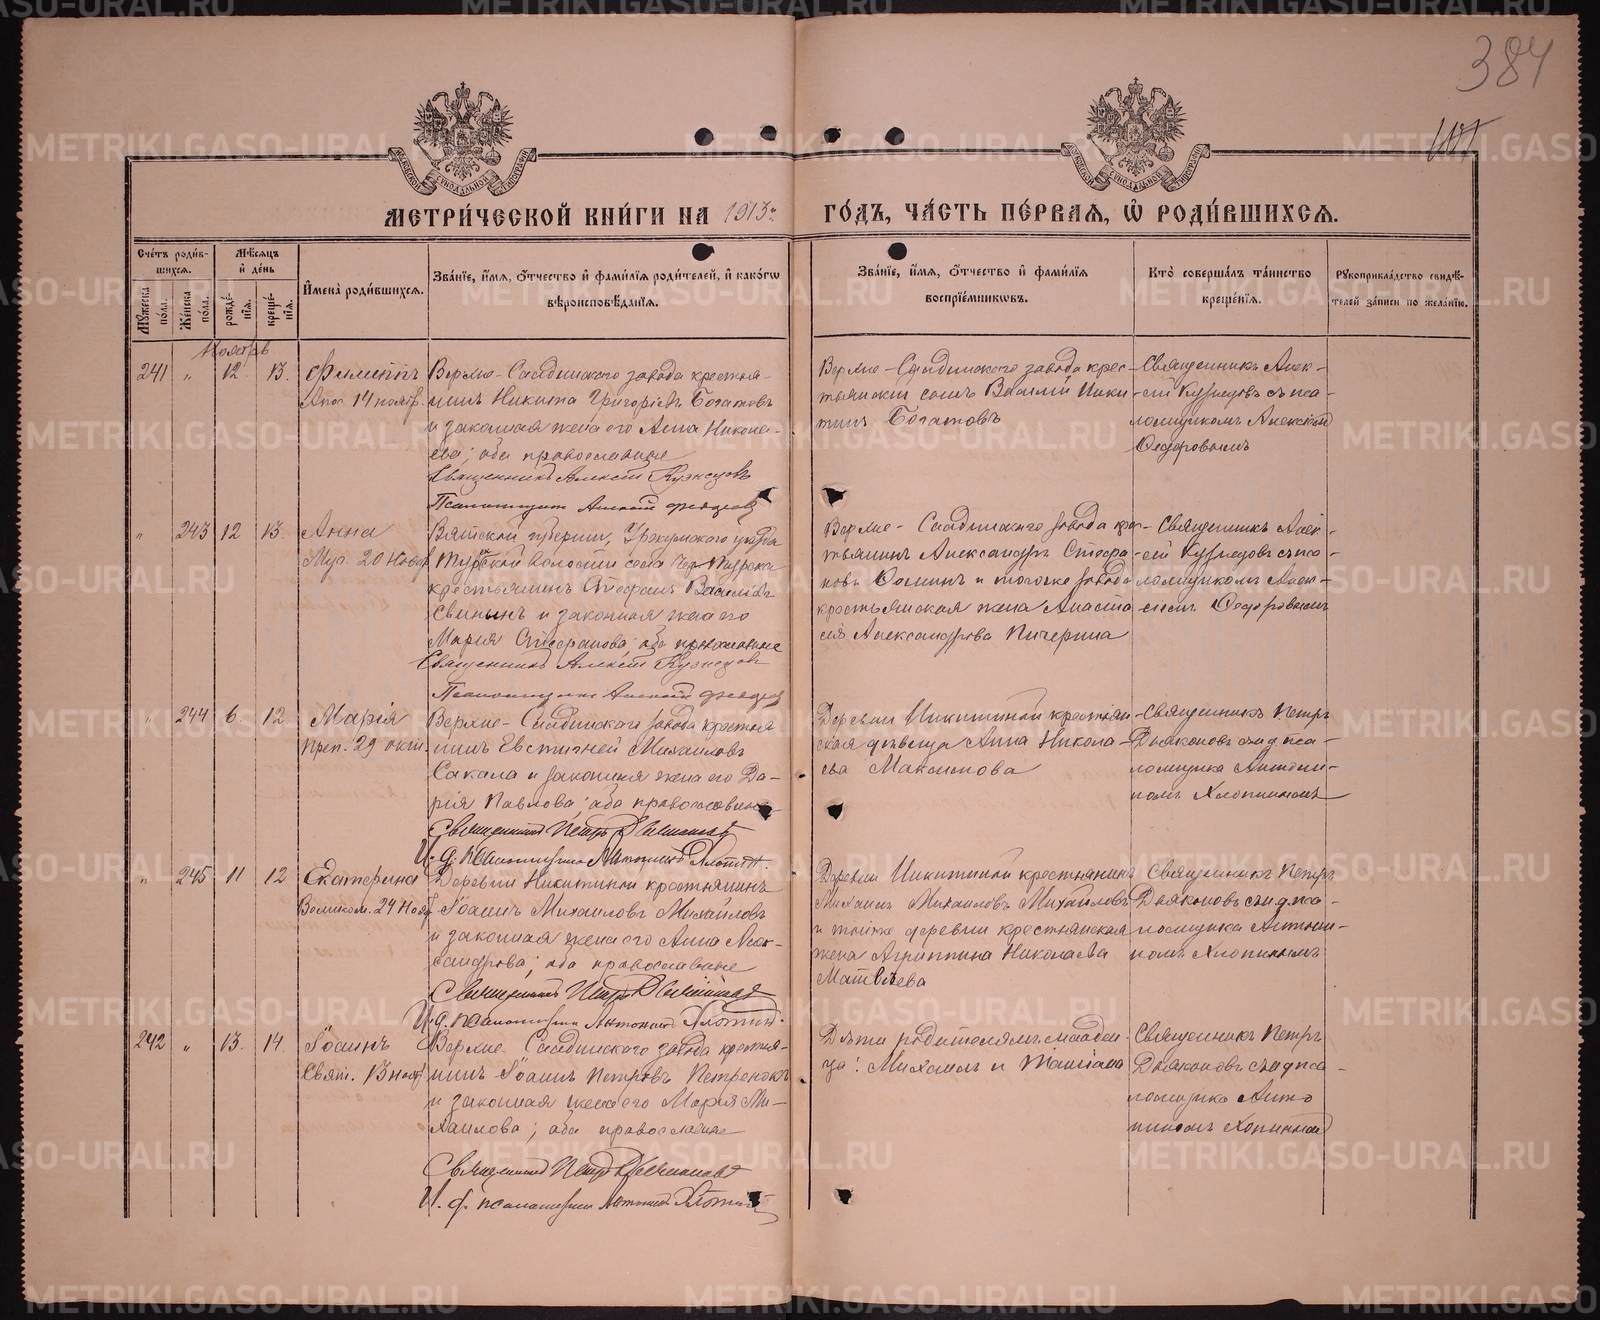 384
МЕТРИ́ЧЕСКОЙ КНИ́ГИ НА 1913 г.
ГО́ДЪ, ЧА́СТЬ ПЕ́РВАЯ, Ѡ РОДИ́ВШИХСЯ.
Сче́тъ роди́вшихся.
Мѣ́сяцъ и де́нь
Му́жеска по́ла.
Же́нска по́ла.
рожде́нїя.
креще́нїя.
И́мена̀ роди́вшихся.
Зва́нїе, и́мя, ѻ́тчество и фами́лїя роди́телей, и како́гѡ вѣроисповѣ́данїя.
Зва́нїе, и́мя, ѻ́тчество и фами́лїя воспрїе́мникѡвъ.
Кто̀ соверша́лъ та́инство креще́нїя.
Рꙋкоприкла́дство свидѣ́телей за́писи по жела́нїю.
Ноябрь
241 " 12 13.
Филиппъ
Апос 14 нояб.
Верхне-Салдинскаго завода крестья-
нинъ Никита Григорьевъ Богатовъ
и законная жена его Анна Никола-
ева; оба православные
Священникъ Алексѣй Кузнецовъ
Псаломщикъ Алексѣй Федоровъ
Верхне-Салдинскаго завода крес-
тьянскій сынъ Василій Ники-
тинъ Богатовъ
Священникъ Алек-
сѣй Кузнецовъ съ пса-
ломщикомъ Алексѣемъ
Ѳедоровымъ
" 243 12 13.
Анна
Муч. 20 Нояб.
Вятской губерніи, Уржумскаго уѣзда
волости села
крестьянинъ Стефанъ Васильевъ
Свининъ и законная жена его
Марія Стефанова; оба православные
Священникъ Алексѣй Кузнецовъ
Псаломщикъ Алексѣй Федоровъ
Верхне-Салдинскаго завода кре-
стьянинъ Александръ Стефа-
новъ и того же завода
крестьянская жена Анаста-
сія Александрова Пичерина
Священникъ Алек-
сѣй Кузнецовъ съ пса-
ломщикомъ Алек-
сѣемъ Ѳедоровымъ
" 244 6. 12
Марія
Преп. 29 окт.
Верхне-Салдинскаго завода крестья
нинъ Евстигней Михаиловъ
Сакала и законная жена его Да-
рія Павлова; оба православные
Священникъ Петръ Дьяконовъ
И. д. псаломщика Антонинъ Хлопинъ.
Деревни Никитиной крестьян-
ская дѣвица Анна Никола-
ева Максимова
Священникъ Петръ
Дьяконовъ съ и д пса-
ломщика Антони-
номъ Хлопинымъ
" 245 11 12
Екатерина
Великом. 24 Нояб.
Деревни Никитиной крестьянинъ
Іоаннъ Михаиловъ Михайловъ
и законная жена его Анна Алек-
сандрова; оба православные
Священникъ Петръ Дьяконовъ
И. д. псаломщика Антонинъ Хлопинъ.
Деревни Никитиной крестьянинъ
Михаилъ Михаиловъ Михайловъ
и тойже деревни крестьянская
жена Агриппина Николаева
Матвѣева
Священникъ Петръ
Дьяконовъ съ и д пса-
ломщика Антони-
номъ Хлопинымъ
242 " 13. 14.
Іоаннъ
Свят. 13 нояб.
Верхне Салдинскаго завода крестья-
нинъ Іоаннъ Петровъ Петренокъ
и законная жена его Марія Ми-
хаилова; оба православные
Священникъ Петръ Дьяконовъ
И. д. псаломщика Антонинъ Хлопинъ
Дѣти родителямъ младен-
ца: Михаилъ и Татіана
Священникъ Петръ
Дьяконовъ съ и д пса-
ломщика Анто
ниномъ Хлопинымъ